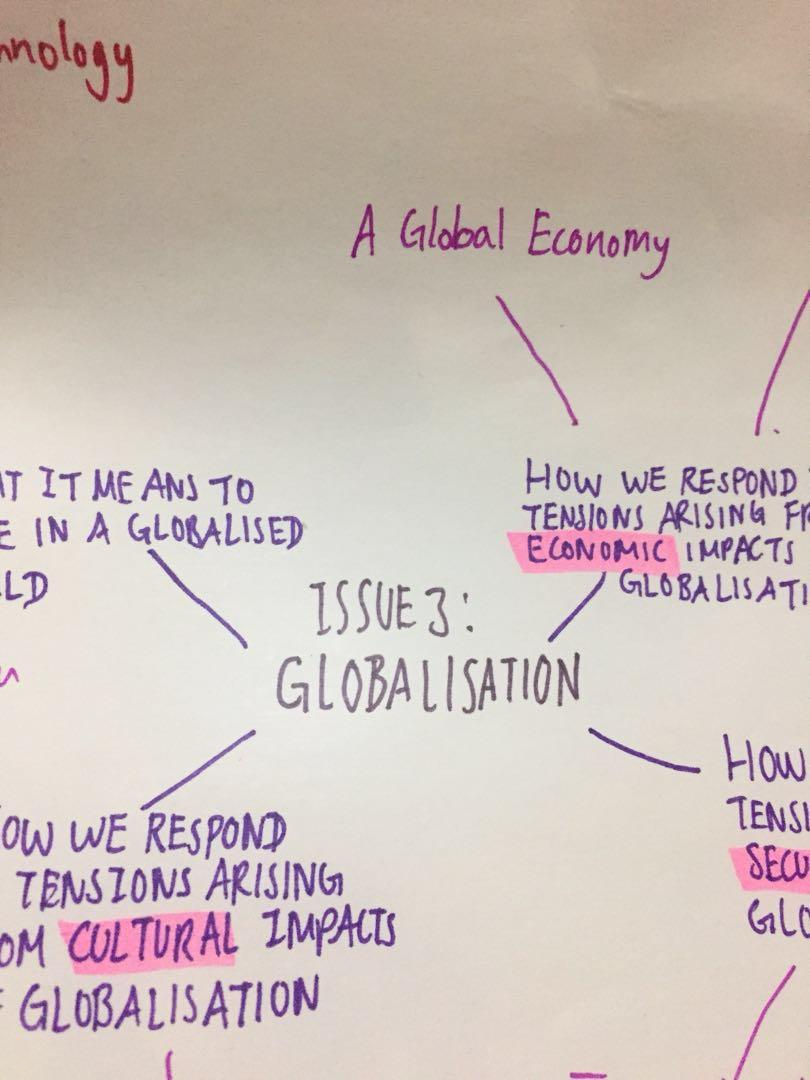 nology
A Global Economy
IT MEANS TO
IN A GLOBALISED
LD
HOW WE RESPOND
TENSIONS ARISING FR
ECONOMIC IMPACTS
GLOBALISATI
ISSUE 3:
GLOBALISATION
OW WE RESPOND
TENSIONS ARISING
OM CULTURAL IMPACTS
GLOBALISATION
HOW
TENSI
SECU
GLO